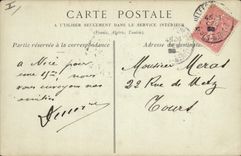 CARTE POSTALE
A UTILISER SEULEMENT DANS LE SERVICE INTÉRIEUR
(France, Algérie, Tunisie)
Partie réservée à la correspondance
Adresse du destinataire
a Nice pour
une nous
vous envoyons nos
amitiés
Monsieur Meras
22 Rue de Metz
Tours